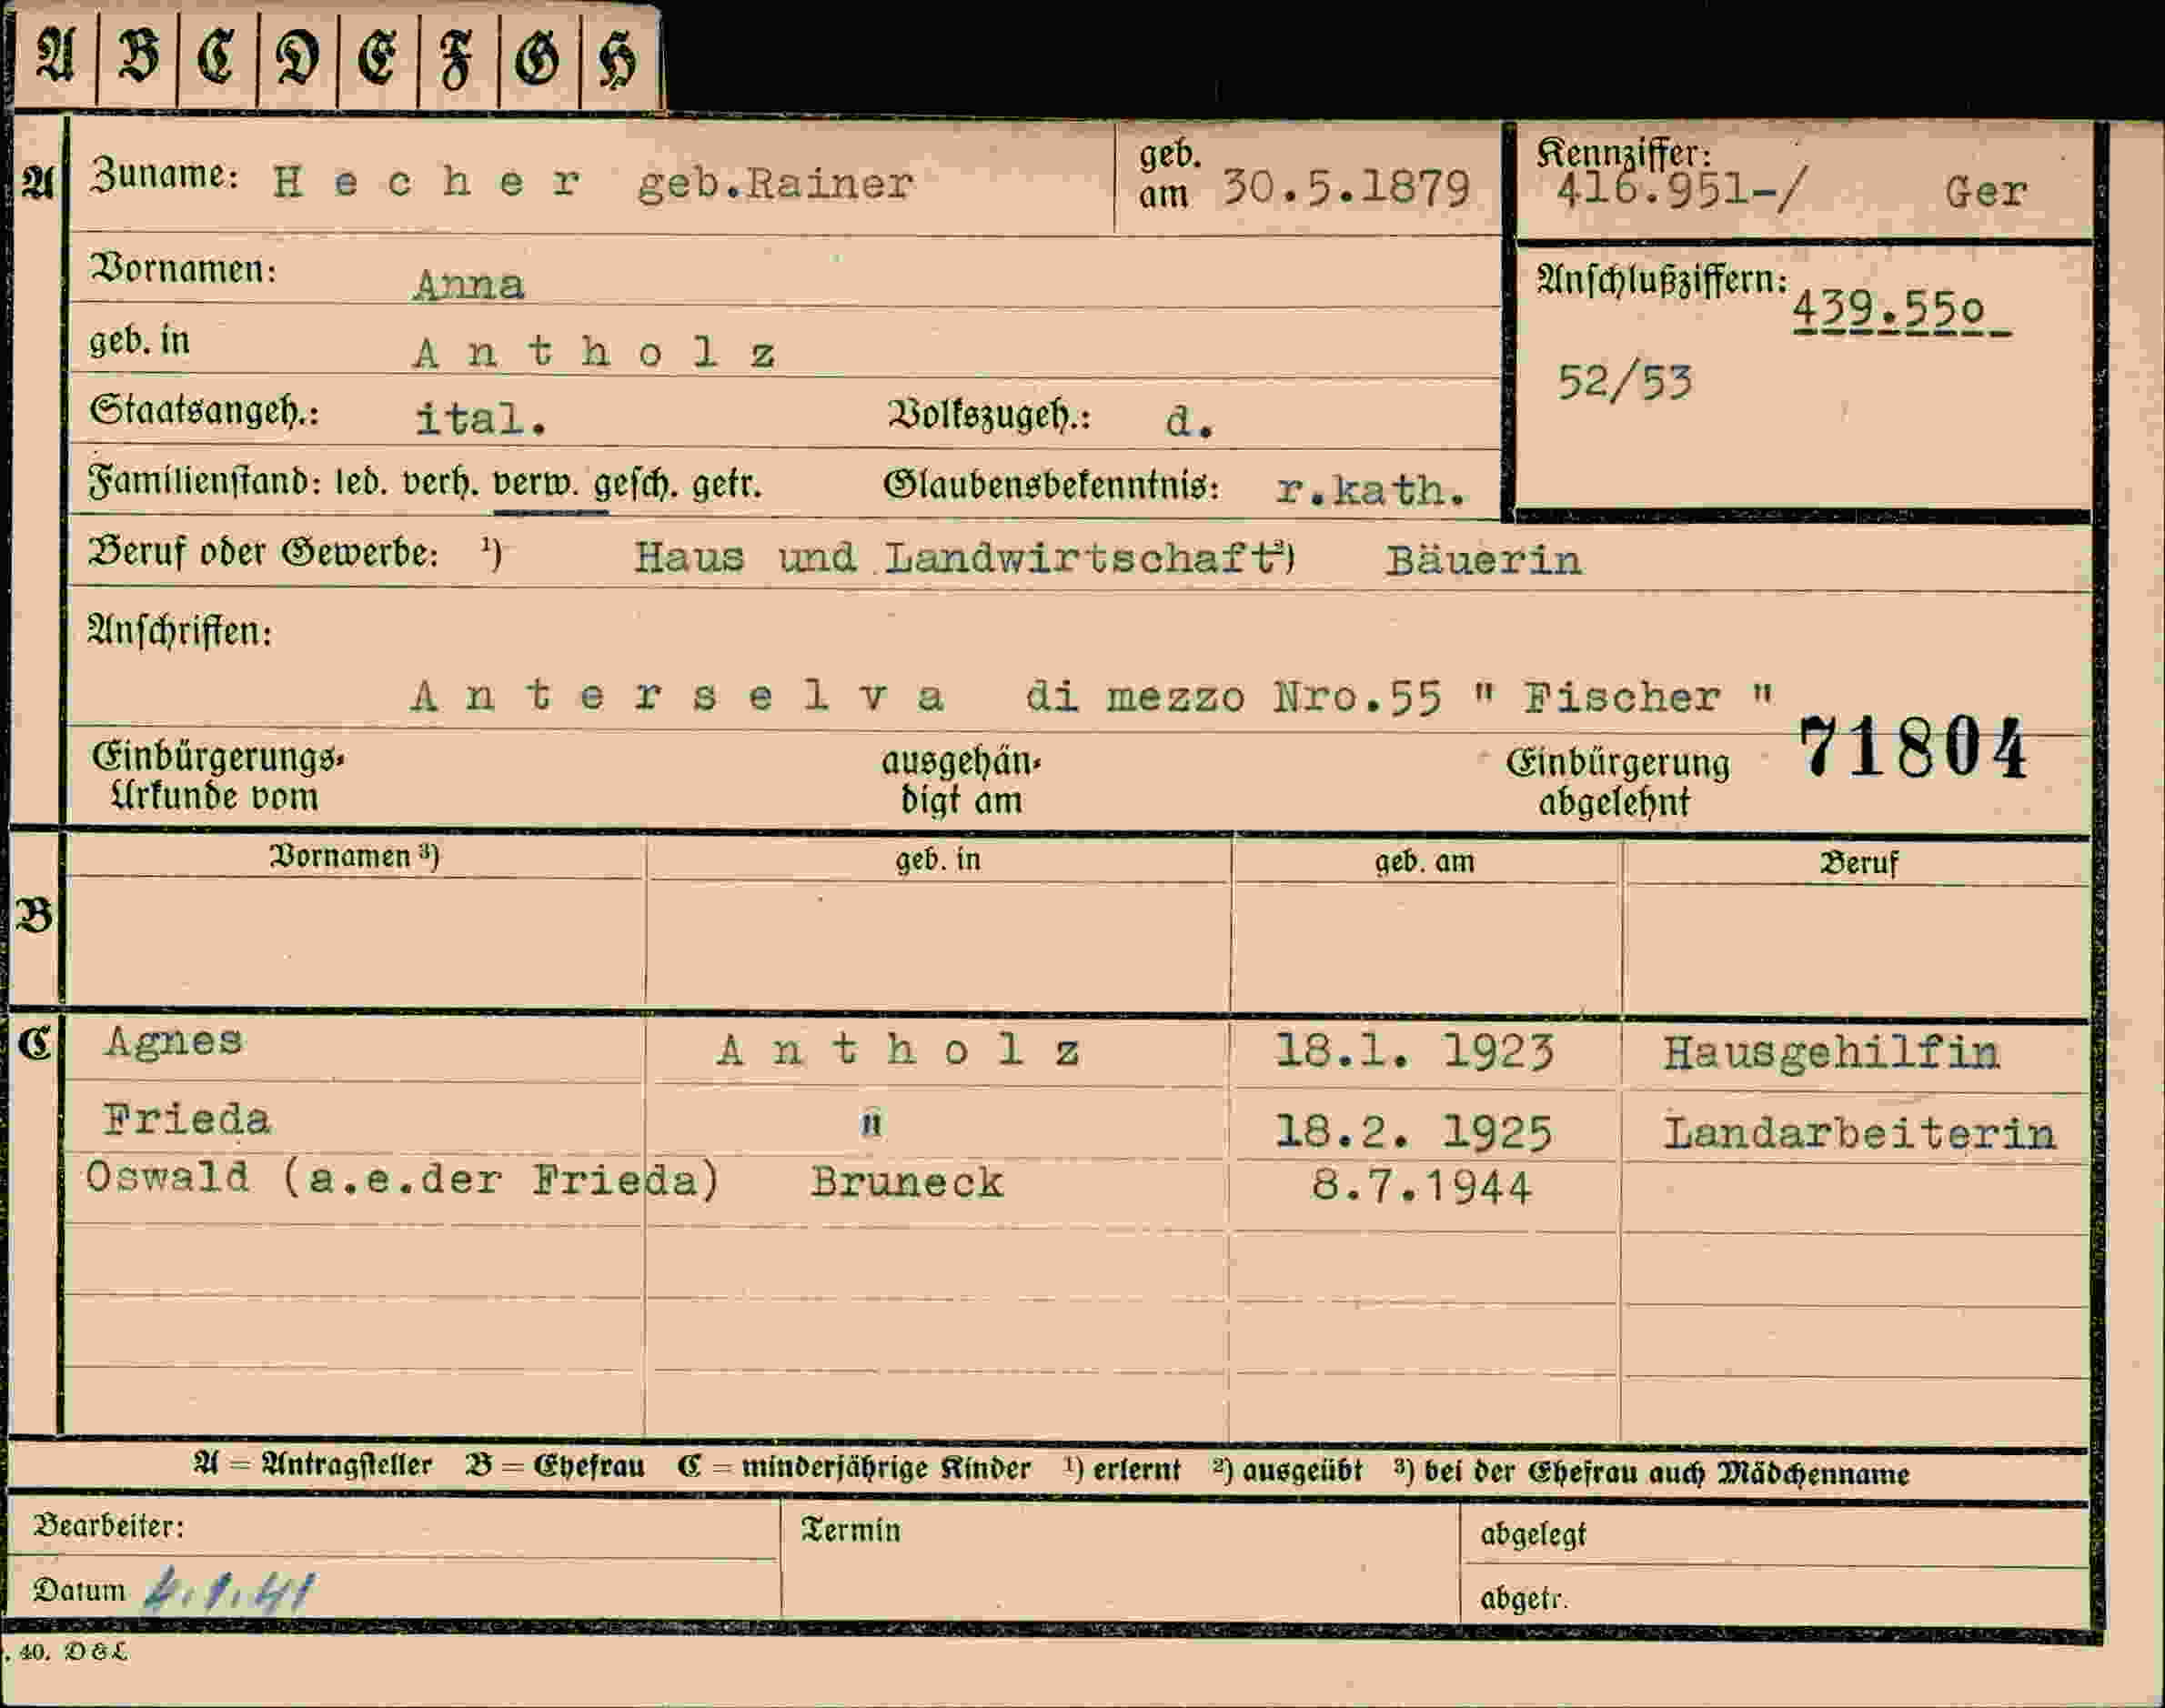 A B C D E F G H
A Zuname: Hecher geb.Rainer geb. am 30.5.1879 Kennziffer: 416.951-/ Ger
Vornamen: Anna Anschlußziffern: 439.55o
geb. in Antholz 52/53
Staatsangeh.: ital. Volkszugeh.: d.
Familienstand: led. verh. verw. gesch. getr. Glaubensbekenntnis: r.kath.
Beruf oder Gewerbe: ¹) Haus und Landwirtschaft ²) Bäuerin
Anschriften:
Anterselva di mezzo Nro.55 " Fischer "
Einbürgerungs- ausgehän- Einbürgerung 71804
Urkunde vom digt am abgelehnt
Vornamen ³) geb. in geb. am Beruf
B
C Agnes Antholz 18.1. 1923 Hausgehilfin
Frieda " 18.2. 1925 Landarbeiterin
Oswald (a.e.der Frieda) Bruneck 8.7.1944
A = Antragsteller B = Ehefrau C = minderjährige Kinder ¹) erlernt ²) ausgeübt ³) bei der Ehefrau auch Mädchenname
Bearbeiter: Termin abgelegt
Datum 4.1.41 abgetr.
. 40. D&L